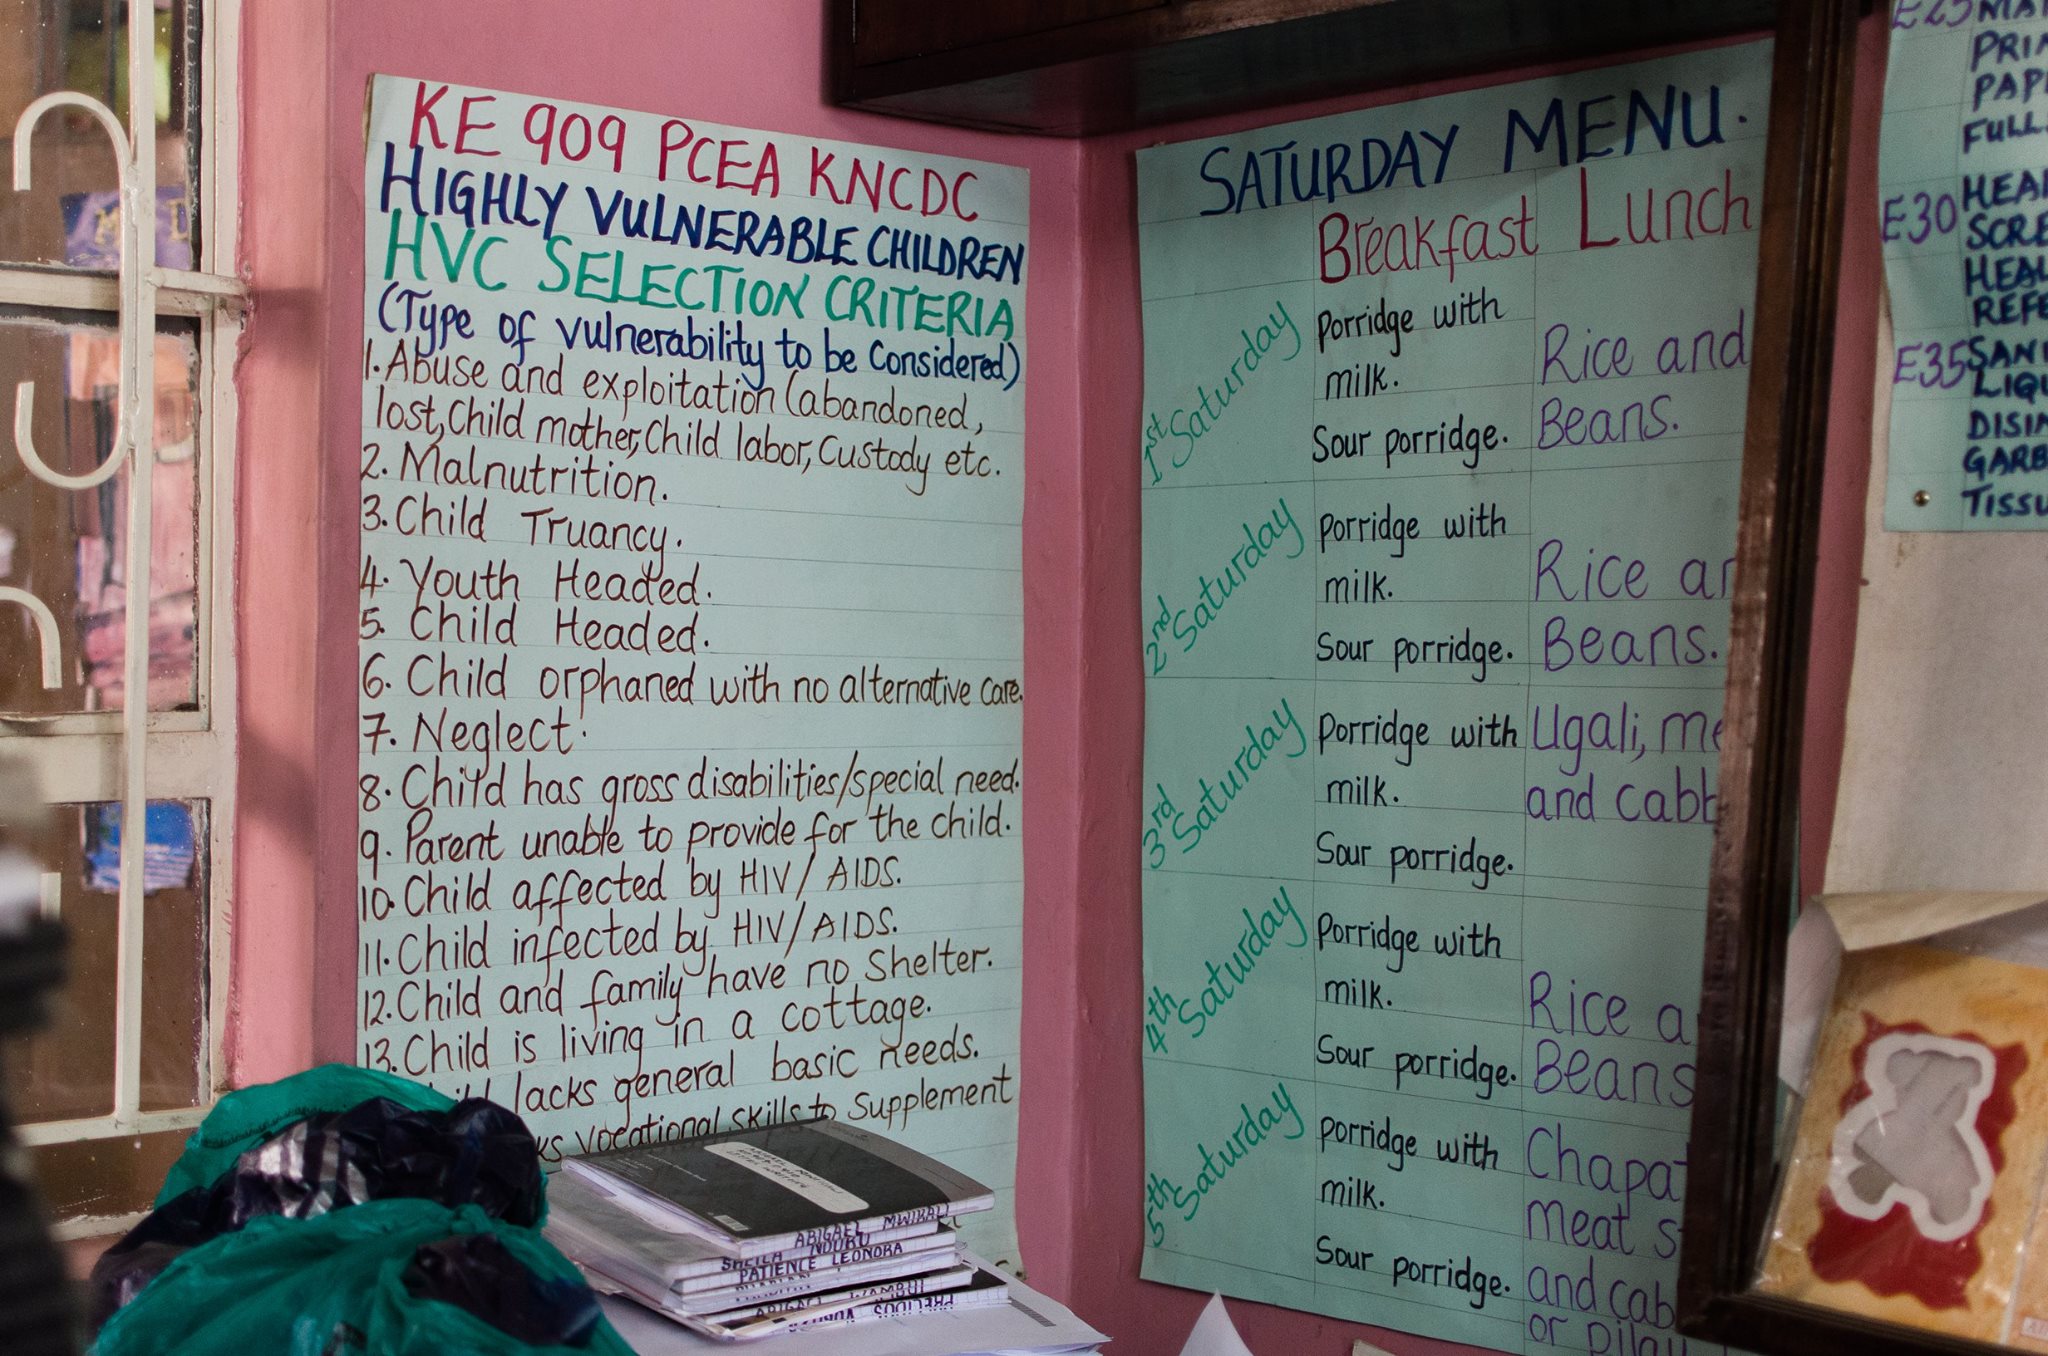 KE 909 PCEA KNCDC
HIGHLY VULNERABLE CHILDREN
HVC SELECTION CRITERIA
(Type of vulnerability to be Considered)
1. Abuse and exploitation (abandoned,
lost, Child mother, Child labor, Custody etc.
2. Malnutrition.
3. Child Truancy.
4. Youth Headed.
5. Child Headed.
6. Child orphaned with no alternative care.
7. Neglect.
8. Child has gross disabilities/special need.
9. Parent unable to provide for the child.
10. Child affected by HIV/AIDS.
11. Child infected by HIV/AIDS.
12. Child and family have no Shelter.
13. Child is living in a cottage.
lacks general basic needs.
vocational skills to Supplement
SHEILA ABIGAEL MWIKALI
NDUKU
PATIENCE LEONORA
PRECIOUS
SATURDAY MENU.
Breakfast Lunch
1st Saturday
Porridge with
milk.
Sour porridge.
Rice and
Beans.
2nd Saturday
Porridge with
milk.
Sour porridge.
Rice
Beans.
3rd Saturday
Porridge with
milk.
Sour porridge.
Ugali,
and
4th Saturday
Porridge with
milk.
Sour porridge.
Rice
Beans
5th Saturday
Porridge with
milk.
Sour porridge.
Meat
and
or
E25
FULL
E30
E35